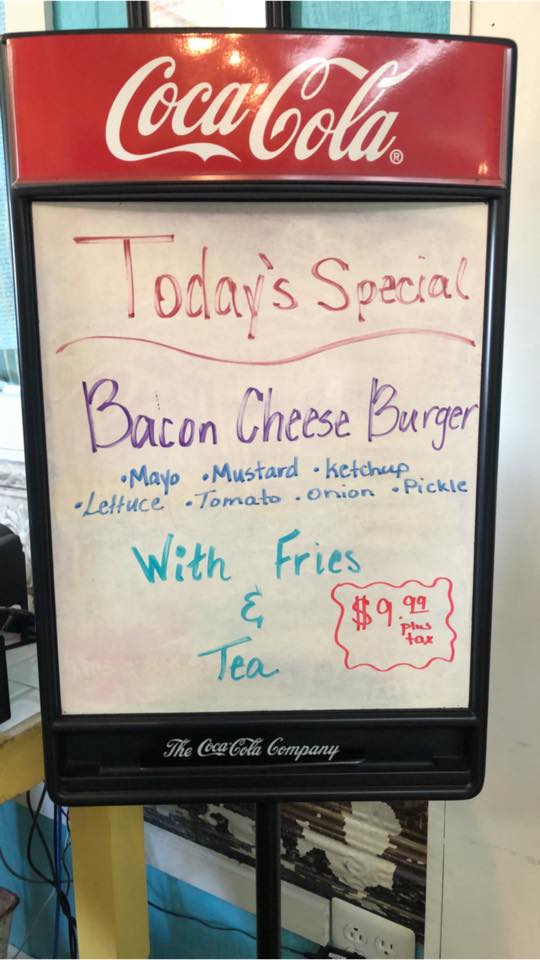 Coca-Cola®
Today's Special
Bacon Cheese Burger
•Mayo •Mustard •Ketchup
•Lettuce •Tomato •Onion •Pickle
With Fries
&
Tea
$9.99
plus
tax
The Coca-Cola Company